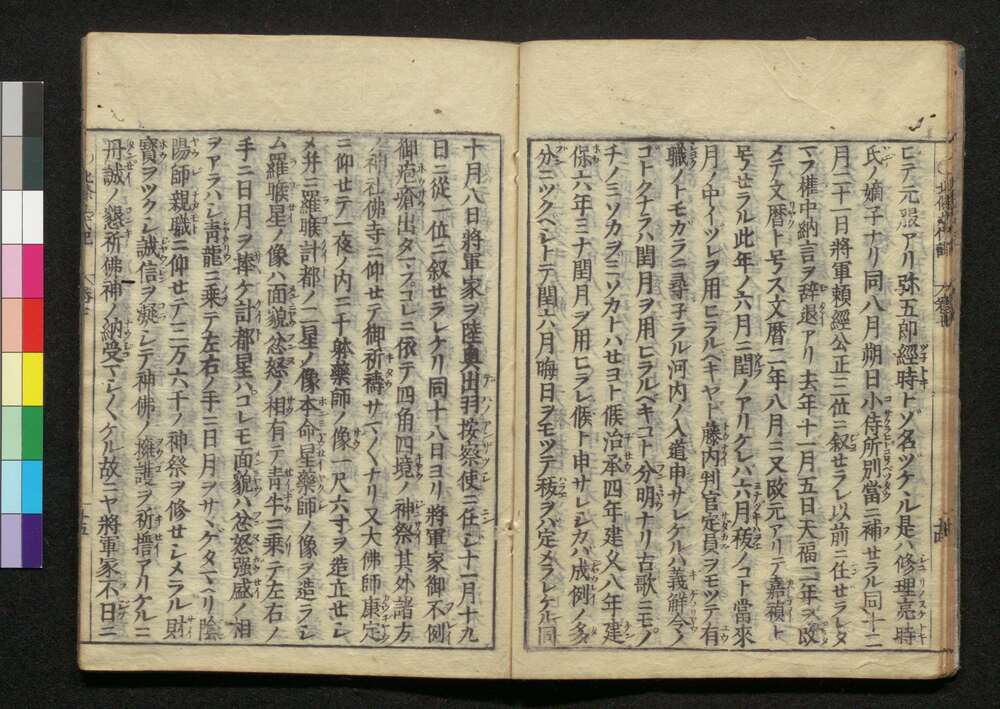 ヒテ元服アリ弥五郎經時トソ名ツケケル是ハ修理亮時
氏ノ嫡子ナリ同八月朔日小侍所別當ニ補セラル同十二
月二十一日將軍頼經公正三位ニ叙セラレ以前ニ任セラレタ
マフ權中納言ヲ辭退アリ去年十一月五日天福二年ヲ改
メテ文暦ト号ス文暦二年八月ニ又改元アリテ嘉禎ト
号セラル此年ノ六月ニ閏ノアリケレハ六月秡ノコト當來
月ノ中イツレヲ用ヒラルヘキヤト藤内判官定員ヲモツテ有
職ノトモガラニ尋子ラル河内ノ入道申サレケルハ義鮮今ノ
コトクナラハ閏月ヲ用ヒラルベキコト分明ナリ古歌ニモノ
チノミソカヲミソカトハセヨト候治承四年建久八年建
保六年ミナ閏月ヲ用ヒラレ候ト申サレシカバ成例ノ多
分ニツクベシトテ閏六月晦日ヲモツテ秡ヲバ定メラレケル同
十月八日將軍家ヲ陸奥出羽按察使ニ任シ十一月十九
日ニ從一位ニ叙セラレケリ同十八日ヨリ將軍家御不例
御疱瘡出タマフコレニ依テ四角四境ノ神祭其外諸方
ノ神社佛寺ニ仰セテ御祈禱サマ〱ナリ又大佛師康定
ニ仰セテ一夜ノ内ニ千躰藥師ノ像一尺六寸ヲ造立セシ
メ并ニ羅睺計都ノ二星ノ像本命星藥師ノ像ヲ造ラシ
ム羅睺星ノ像ハ面貌忿怒ノ相有テ青牛ニ乗テ左右ノ
手ニ日月ヲ捧ケ計都星ハコレモ面貌ハ忿怒强盛ノ相
ヲアラハシ青龍ニ乗テ左右ノ手ニ日月ヲサヽゲタマヘリ陰
陽師親職ニ仰セテ二万六千ノ神祭ヲ修セシメラル財
寶ヲツクシ誠信ヲ凝シテ神佛ノ擁護ヲ祈擔アリケルニ
丹誠ノ懇祈佛神ノ納受マシ〱ケル故ニヤ將軍家不日ニ